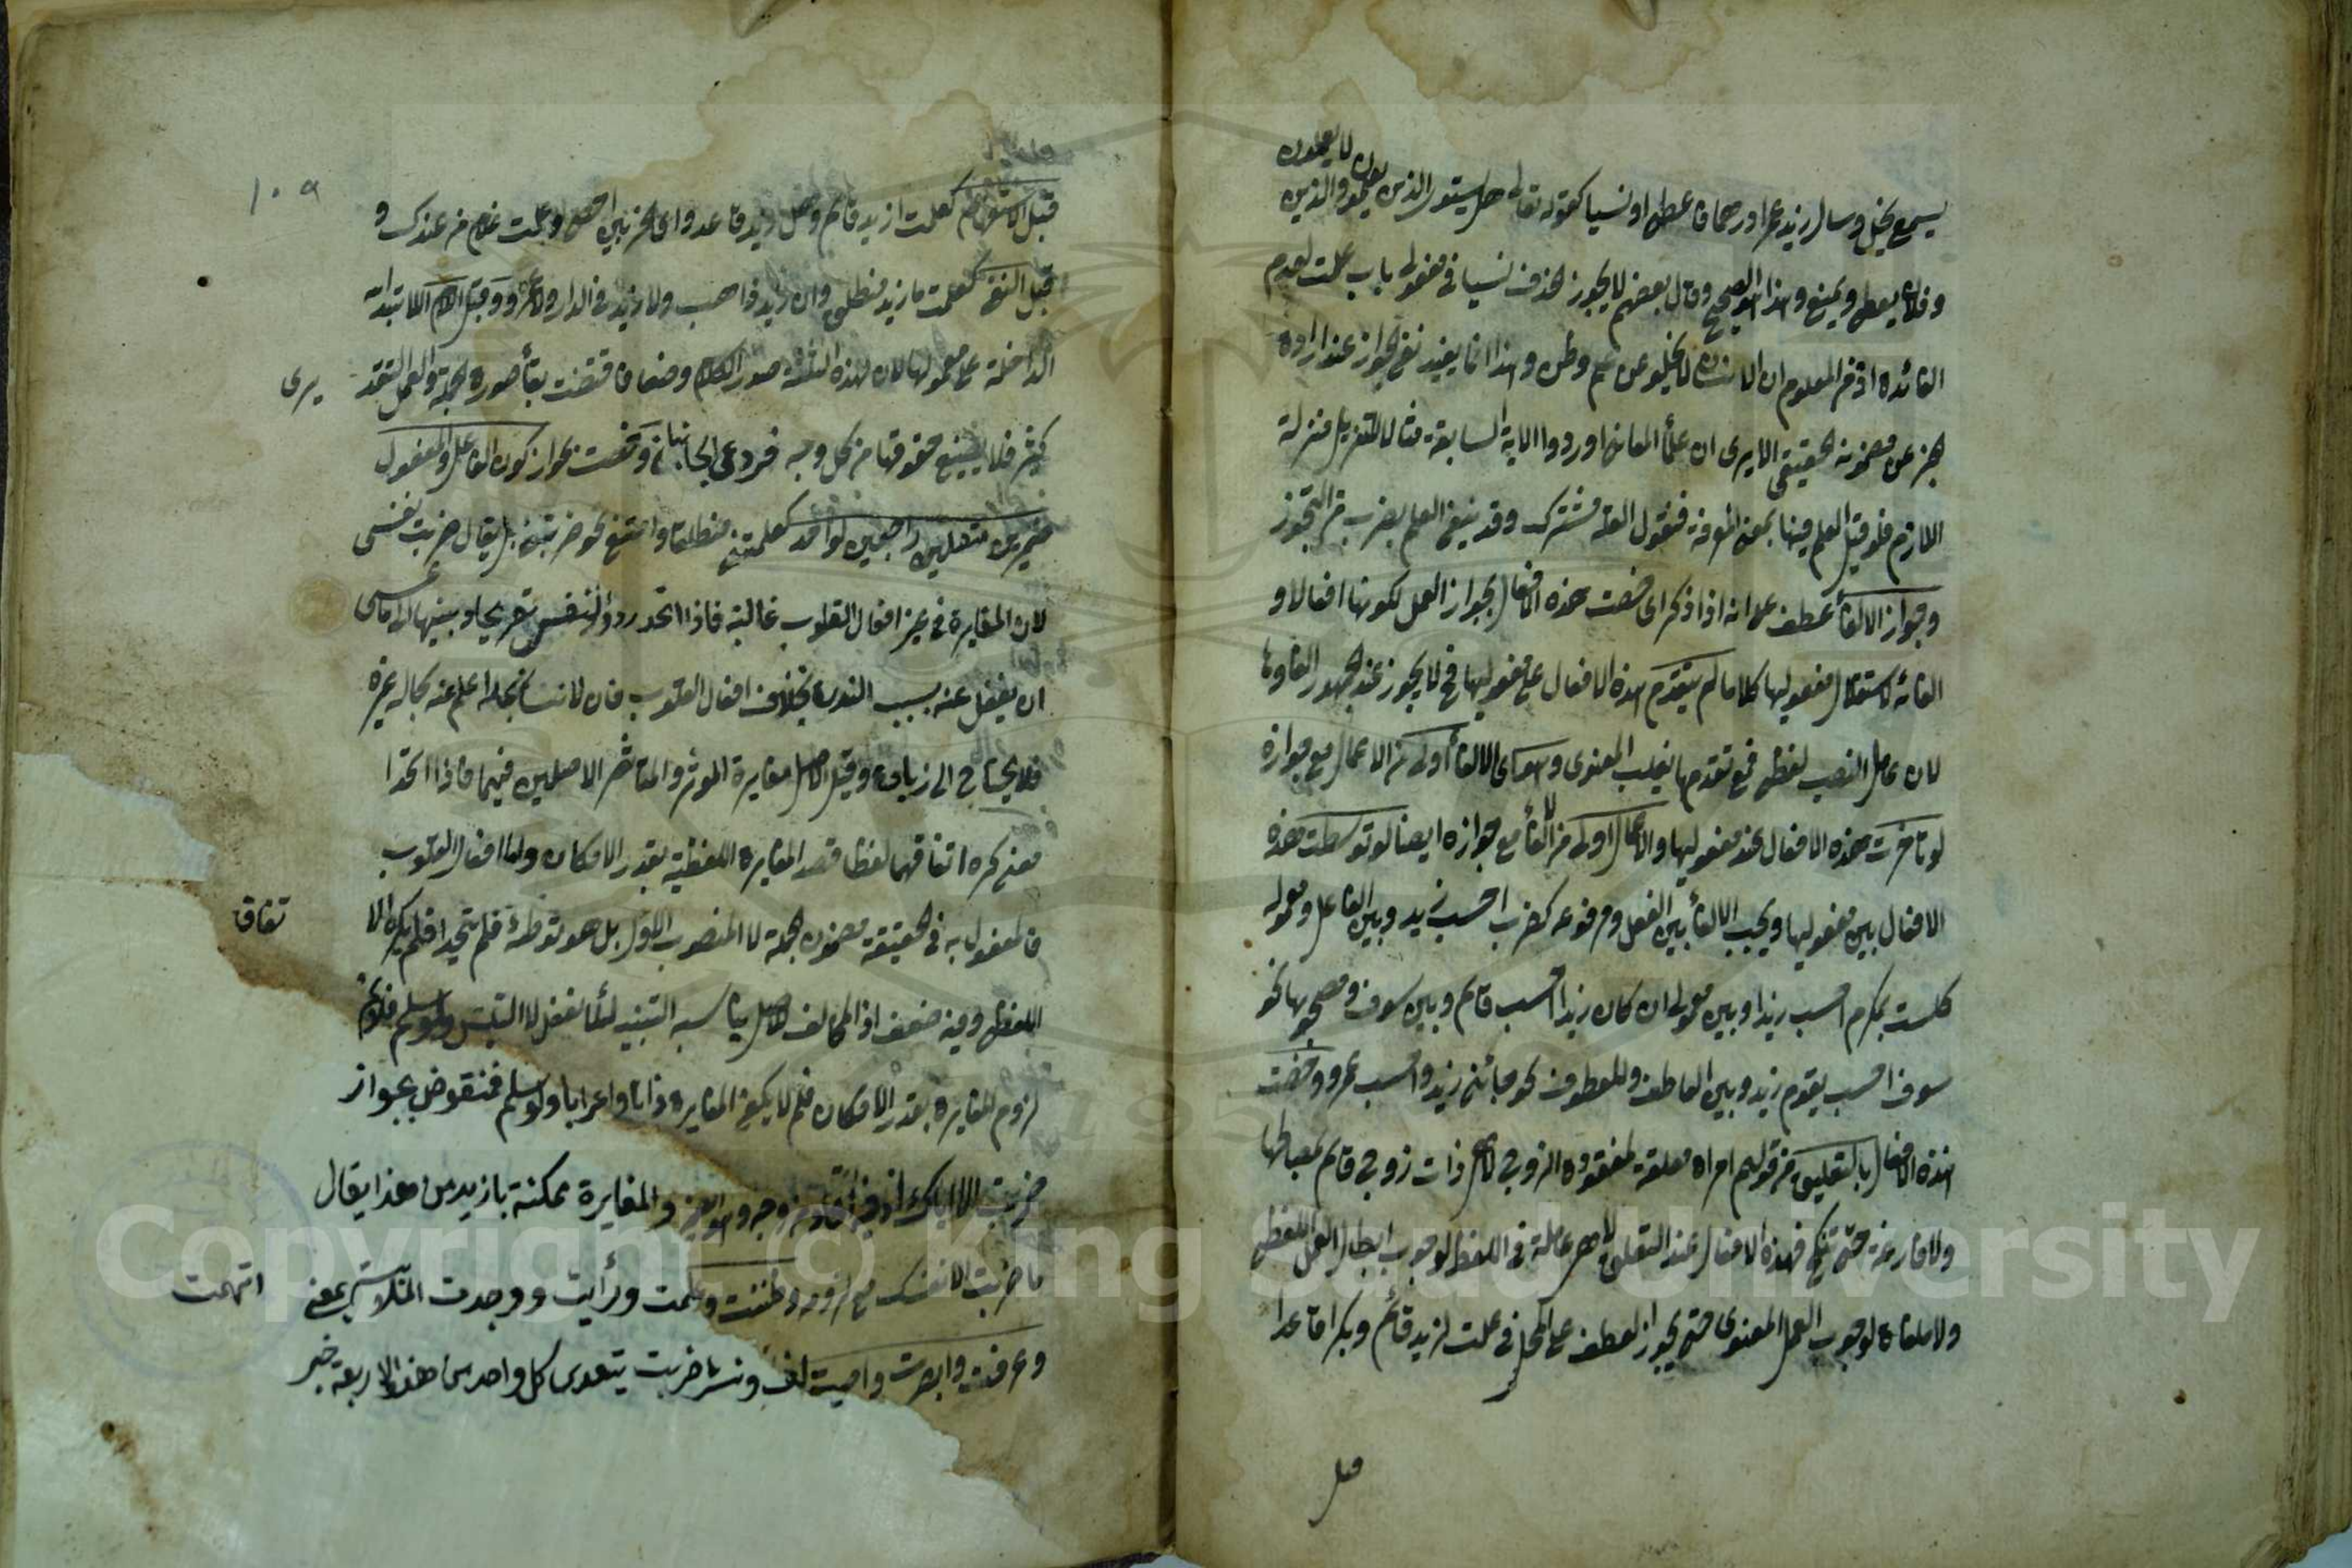 يسمع يخل وسال زيد عمرا درهما فاعطى او نسيا كقوله تعالى هل يستوى الذين يعلمون والذين لا يعلمون
وفلان يعطى ويمنع وهذا هو الصحيح وقال بعضهم لا يجوز الحذف نسيا فى مفعولى باب علمت لعدم
الفائدة اذ من المعلوم ان الانسان لا يخلو عن علم وظن وهذا انما يفيد نفى الجواز عند ارادة
المعنى الحقيقى الا يرى ان علماء المعانى اوردوا الاية السابقة مثالا لتنزيل منزلة
اللازم فلو قيل العلم فيها بمعنى المعرفة فنقول العلة مشتركة وقد ينفى العلم بضرب من التجوز
وجواز الالغاء عطف على انه اذا ذكر اى خصت هذه الافعال بجواز العمل لكونها افعالا و
الغائه لاستقلال مفعوليها كلاما لم يتقدم هذه الافعال على مفعوليها فح لا يجوز عند الجمهور الغاؤها
لان عامل النصب لفظى فمع تقدمها يغلب المعنوى وهو اى الالغاء اولى من الاعمال مع جوازه
لو تاخرت هذه الافعال عند مفعوليها والاعمال اولى من الالغاء مع جوازه ايضا لو توسطت هذه
الافعال بين مفعوليها ويجب الالغاء بين الفعل ومرفوعه كضرب احسب زيد وبين الفاعل ومعموله
كلست بمكرم احسب زيدا وبين معمولى ان كان زيدا احسب قائم وبين سوف ومصحوبها نحو
سوف احسب يقوم زيد وبين العاطف والمعطوف نحو جائنى زيد واحسب عمرو وخصت
هذه الافعال بالتعليق من قولهم امراة معلقة لمفقودة الزوج لا هى ذات زوج قائم بمصالحها
ولا فارغة حتى تنكح فهذه الافعال عند التعليق لا هى عاملة فى اللفظ لوجوب ابطال العمل اللفظى
ولا ملغاة لوجوب العمل المعنوى حتى يجوز العطف على المحل فى علمت لزيد قائم وبكرا قاعدا
قبل
١٠٩
قبل الاستفهام كعلمت ازيد قائم وهل زيد قاعد واى الحزبين احصى وعلمت غلام من عندك و
قبل النفى كعلمت ما زيد منطلق وان زيد ذاهب ولا زيد فى الدار ولا عمرو وقبل اللام الابتدائه
الداخلة على معمولها لان لهذه الثلثة صدر الكلام وضعا فاقتضت بقاء صورة الجملة والعمل التقدـ
يرى
كثير فلا يضيع حقوقها من كل وجه فروعى الجانبان وخصت بجواز كون الفاعل والمفعول
ضميرين متصلين راجعين لواحد كعلمتنى منطلقا وامتنع نحو ضربتنى بل يقال ضربت نفسى
لان المغايرة فى غير افعال القلوب غالبة فاذا اتحد ردوا النفس تصريحا وتنبيها لما عسى
ان يغفل عنه بسبب الندرة بخلاف افعال القلوب فان الانسان بحاله اعلم عنه بحال غيره
فلا يحتاج الى زيادة وقيل الاصل مغايرة الموثر والمتاثر الاصلين فيهما فاذا اتحدا
معنى كره اتفاقهما لفظا قصد المغايرة اللفظية بقدر الامكان واما افعال القلوب
فالمفعول به فى الحقيقة مضمون الجملة لا المنصوب الاول بل هو توطئة فلم يتحدا فلم يكره الا
تفاق
اللفظى وفيه ضعف اذ المخالف للاصل يناسبه التنبيه لئلا يغفل لا التلبس ولو سلم فلا يم
لزوم المغايرة بقدر الامكان فلم لا يكفى المغايرة ذاتا واعرابا ولو سلم فمنقوض بجواز
ضربت الا اياك والمغايرة ممكنة بازيد من هذا يقال
ما ضربت الا نفسك مع لزومه وظننت وعلمت ورأيت ووجدت المتلابس بمعنى
اتهمت
وعرفت وابصرت واصبت لف ونشر ضربت يتعدى كل واحد من هذه الاربعة حين